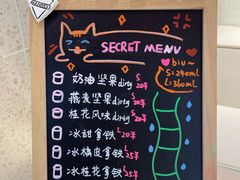 SECRET MENU
biu~
S:240ml
L:360ml
奶油坚果dirty S 20
燕麦坚果dirty S 20
桂花风味dirty S
冰甜拿铁 L 20
冰橘皮拿铁 L 25
冰桂花拿铁 L 25